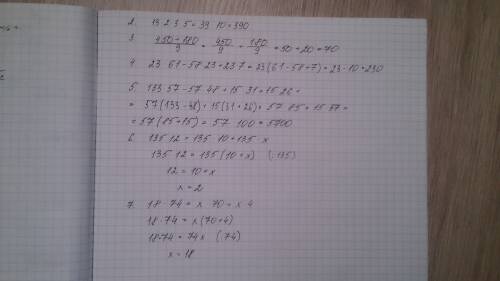 2. 13 2 3 5 = 39 10 = 390
3. 450 + 180 / 9 = 450 / 9 + 180 / 9 = 50 + 20 = 70
4. 23 61 - 58 23 + 23 7 = 23 (61 - 58 + 7) = 23 · 10 = 230
5. 133 57 - 57 48 + 15 31 + 15 26 =
= 57 (133 - 48) + 15 (31 + 26) = 57 85 + 15 57 =
= 57 (85 + 15) = 57 100 = 5700
6. 135 12 = 135 10 + 135 x
135 12 = 135 (10 + x) (:135)
12 = 10 + x
x = 2
7. 18 · 74 = x 70 + x 4
18 · 74 = x (70 + 4)
18 · 74 = 74 x (:74)
x = 18